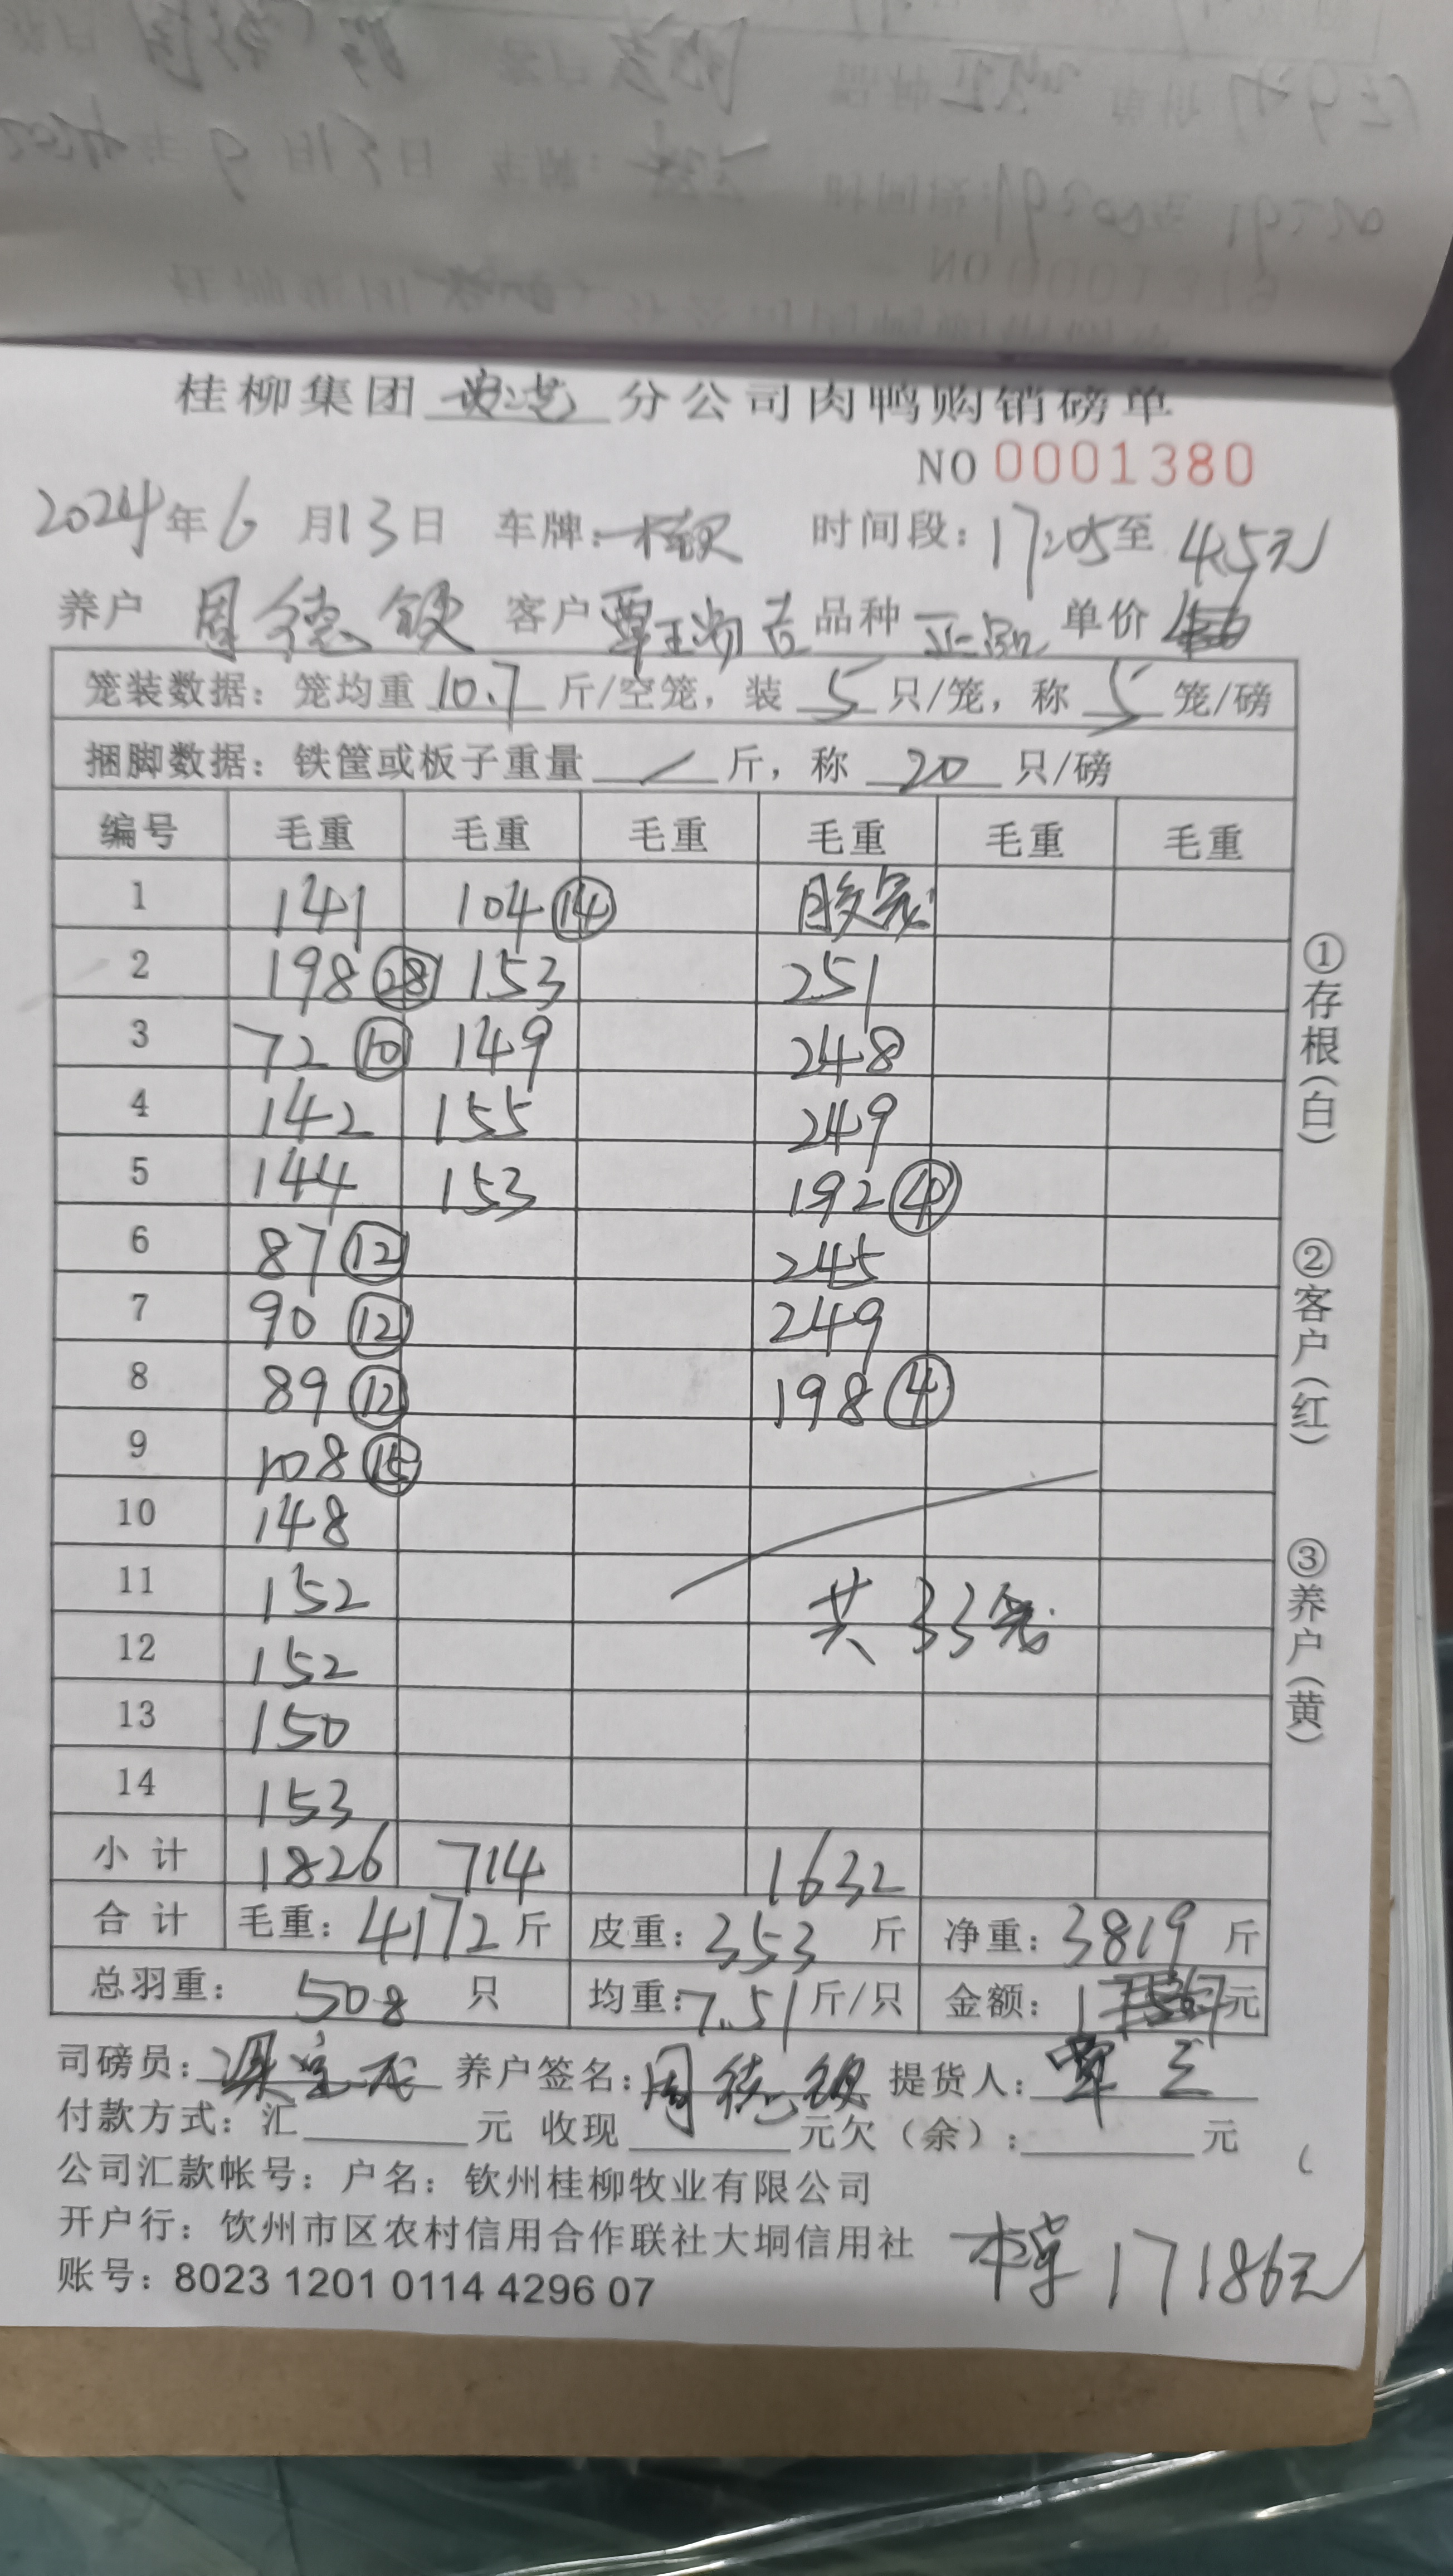 桂柳集团 分公司肉鸭购销磅单
NO 0001380
2024年6月13日 车牌: 时间段:17:05至 4.5元
养户 周德钦 客户 覃 吉 品种 正品 单价
笼装数据:笼均重 10.7 斤/空笼,装 5 只/笼,称 5 笼/磅
捆脚数据:铁筐或板子重量 / 斤,称 20 只/磅
编号 毛重 毛重 毛重 毛重 毛重 毛重
1 141 104 ⑭ 胶笼
2 198 ㉘ 153 251
3 72 ⑩ 149 248
4 142 155 249
5 144 153 192 ④
6 87 ⑫ 245
7 90 ⑫ 249
8 89 ⑫ 198 ④
9 108 ⑮
10 148
11 152 共33笼
12 152
13 150
14 153
小计 1826 714 1632
合计 毛重:4172斤 皮重:353斤 净重:3819斤
总羽重: 508 只 均重:7.51斤/只 金额: 元
司磅员: 养户签名:周德钦 提货人:覃三
付款方式:汇 元 收现 元欠(余): 元
公司汇款帐号:户名:钦州桂柳牧业有限公司
开户行:饮州市区农村信用合作联社大垌信用社
账号:8023 1201 0114 4296 07
17186元
①存根(白)
②客户(红)
③养户(黄)